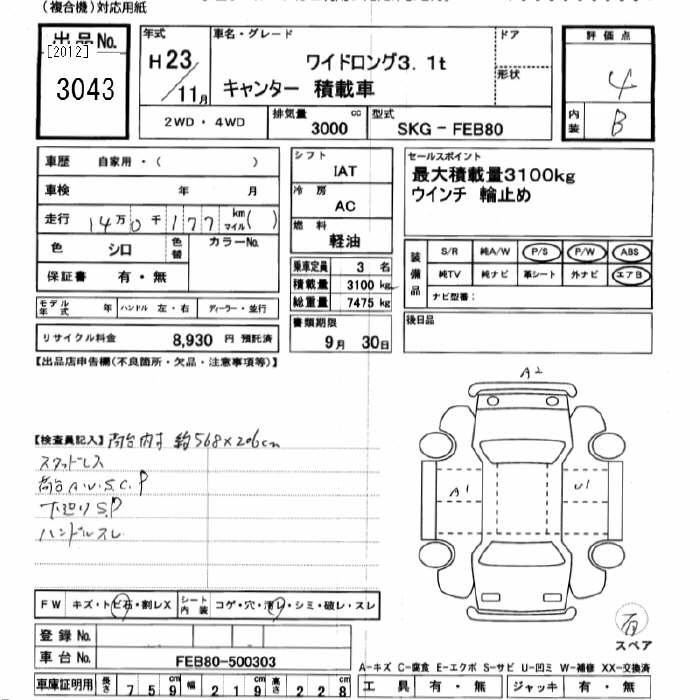 (複合機)対応用紙
出品No.
[2012]
3043
年式
H23/11月
車名・グレード
ワイドロング3.1t
キャンター 積載車
ドア
形状
評価点
4
内装
B
2WD・4WD
排気量
3000 cc
型式
SKG-FEB80
車歴 自家用・( )
車検 年 月
走行 14万0千177 km マイル( )
色 シロ
色替
カラーNo.
保証書 有・無
モデル年式 年 ハンドル 左・右 ディーラー・並行
リサイクル料金 8,930 円 預託済
シフト
IAT
冷房
AC
燃料
軽油
乗車定員 3 名
積載量 3100 kg
総重量 7475 kg
書類期限
9月 30日
セールスポイント
最大積載量3100kg
ウインチ 輪止め
装備品
S/R 純A/W P/S P/W ABS
純TV 純ナビ 革シート 外ナビ エアB
ナビ型番:
後日品
【出品店申告欄(不良箇所・欠品・注意事項等)】
【検査員記入】荷台内寸 約568×206cm
スタッドレス
荷台A.U.S.C.P
下廻りS.P
ハンドルスレ
A2
A1
U1
FW キズ・トビ石・割レX
シート内装 コゲ・穴・汚レ・シミ・破レ・スレ
登録No.
車台No. FEB80-500303
車庫証明用 長さ 759 幅 219 高さ 228
有
スペア
A-キズ C-腐食 E-エクボ S-サビ U-凹ミ W-補修 XX-交換済
工具 有・無 ジャッキ 有・無